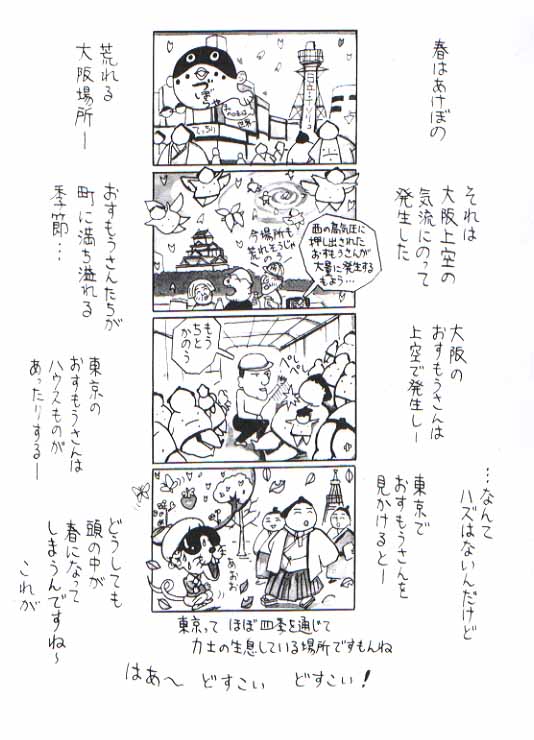 春はあけぼの
荒れる
大阪場所ー
づぼらや
てっちり
それは
大阪上空の
気流にのって
発生した
今場所も
荒れそうじゃ
のう
西の高気圧に
押し出された
おすもうさんが
大量に発生する
もよう…
おすもうさんたちが
町に満ち溢れる
季節…
大阪の
おすもうさんは
上空で発生しー
もう
ちっと
かのう
ぺし
ぺし
東京の
おすもうさんは
ハウスものが
あったりするー
…なんて
ハズはないんだけど
東京で
おすもうさんを
見かけるとー
あおお
どうしても
頭の中が
春になって
しまうんですね〜
これが
東京って ほぼ四季を通じて
力士の生息している場所ですもんね
はあ〜 どすこい どすこい!